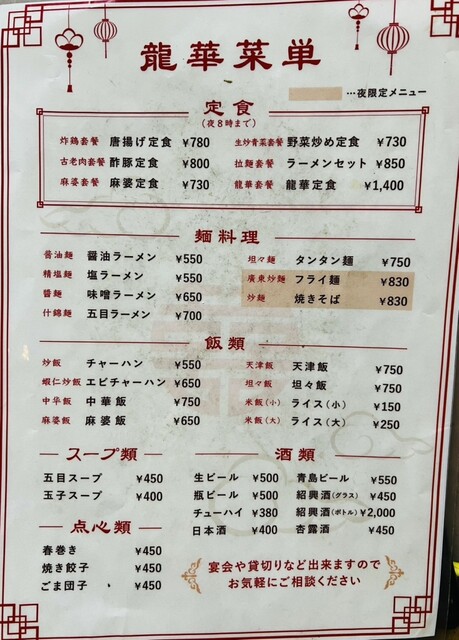 龍華菜単
…夜限定メニュー
定食
(夜8時まで)
炸鶏套餐 唐揚げ定食 ¥780
生炒青菜套餐 野菜炒め定食 ¥730
古老肉套餐 酢豚定食 ¥800
拉麺套餐 ラーメンセット ¥850
麻婆套餐 麻婆定食 ¥730
龍華套餐 龍華定食 ¥1,400
麺料理
醤油麺 醤油ラーメン ¥550
坦々麺 タンタン麺 ¥750
精塩麺 塩ラーメン ¥550
廣東炒麺 フライ麺 ¥830
醬麺 味噌ラーメン ¥650
炒麺 焼きそば ¥830
什錦麺 五目ラーメン ¥700
飯類
炒飯 チャーハン ¥550
天津飯 天津飯 ¥750
蝦仁炒飯 エビチャーハン ¥650
坦々飯 坦々飯 ¥750
中华飯 中華飯 ¥750
米飯(小) ライス(小) ¥150
麻婆飯 麻婆飯 ¥650
米飯(大) ライス(大) ¥250
スープ類
五目スープ ¥450
玉子スープ ¥400
点心類
春巻き ¥450
焼き餃子 ¥450
ごま団子 ¥450
酒類
生ビール ¥500
青島ビール ¥550
瓶ビール ¥500
紹興酒(グラス) ¥450
チューハイ ¥380
紹興酒(ボトル) ¥2,000
日本酒 ¥400
杏露酒 ¥450
宴会や貸切りなど出来ますので
お気軽にご相談ください